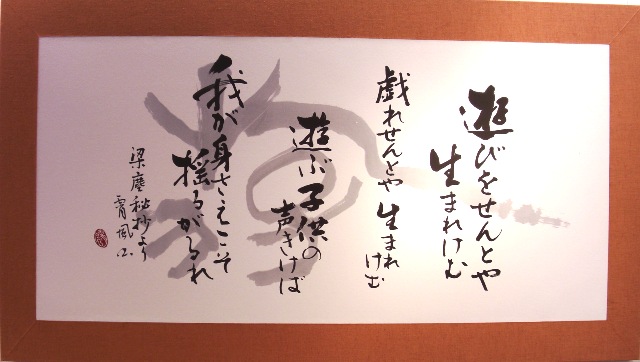 遊びをせんとや
生まれけむ
戯れせんとや生まれ
けむ
遊ぶ子供の
声きけば
我が身さえこそ
揺るがるれ
梁塵秘抄より